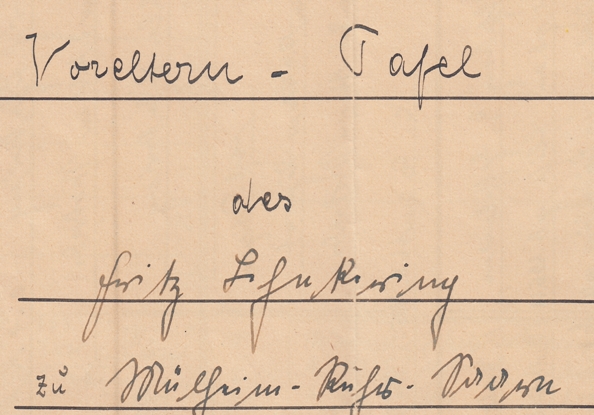 Voreltern - Tafel
des
Fritz Lehnkering
zu Mülheim-Ruhr-Saarn